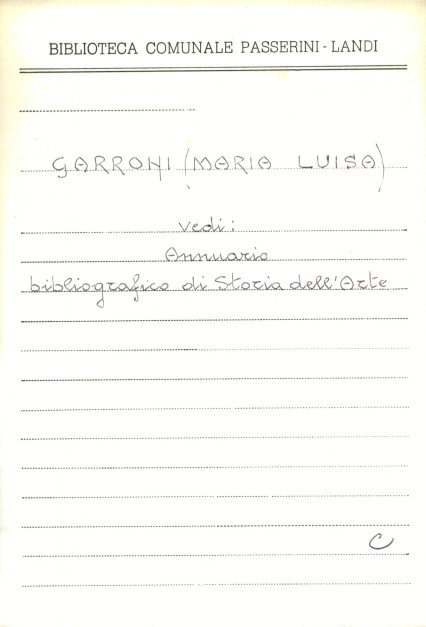 BIBLIOTECA COMUNALE PASSERINI-LANDI
GARRONI (MARIA LUISA)
vedi:
Annuario
bibliografico di Storia dell'Arte
C